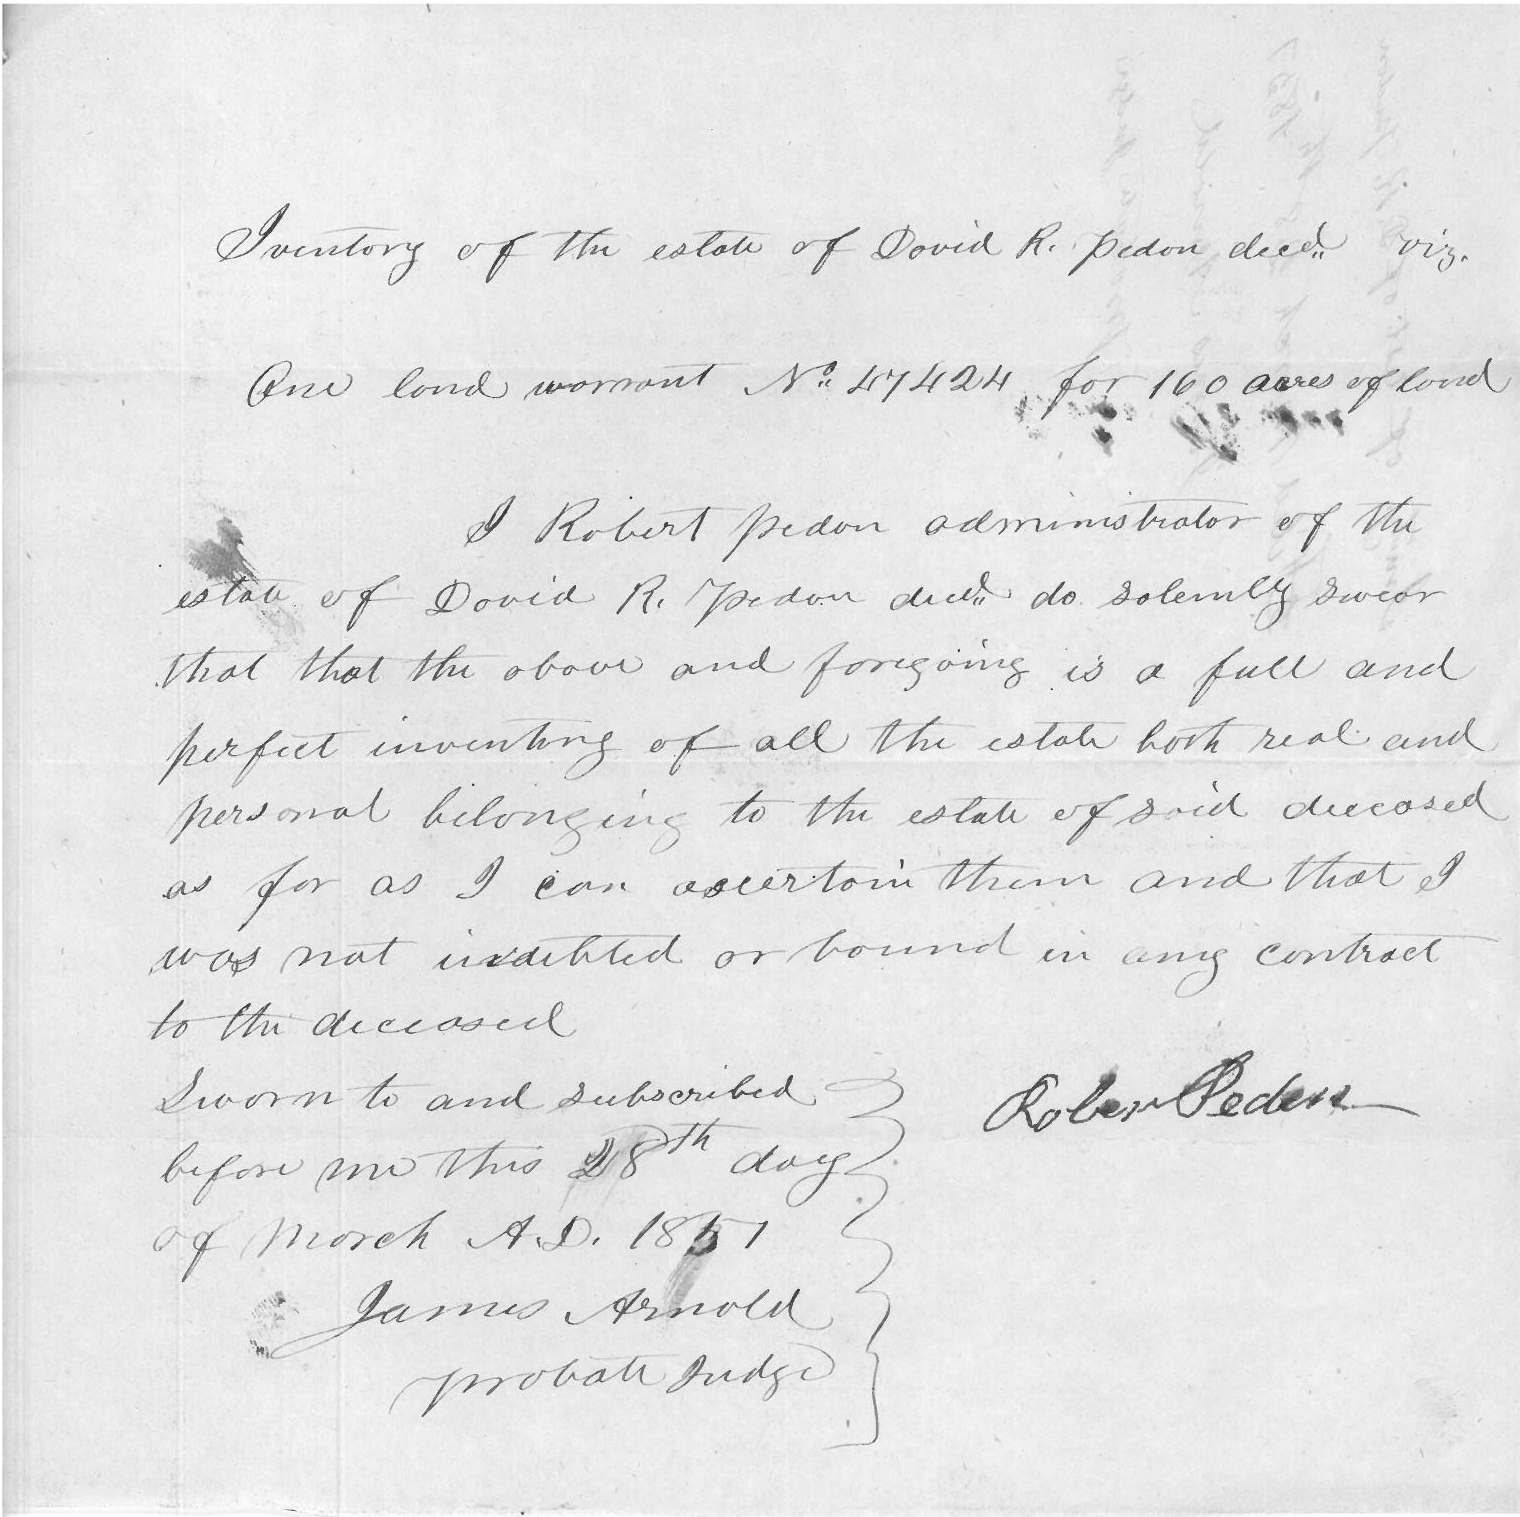 Iventory of the estate of David R. Pedon decd. viz.
One land warrant No. 47424 for 160 acres of land
I Robert Pedon administrator of the
estate of David R. Pedon decd. do solemly swear
that that the above and foregoing is a full and
perfect inventory of all the estate both real and
personal belonging to the estate of said deceased
as far as I can ascertain them and that I
was not indebted or bound in any contract
to the deceased
Sworn to and subscribed
before me this 28th day
of March A.D. 1851
James Arnold
Probate Judge
Robert Peden